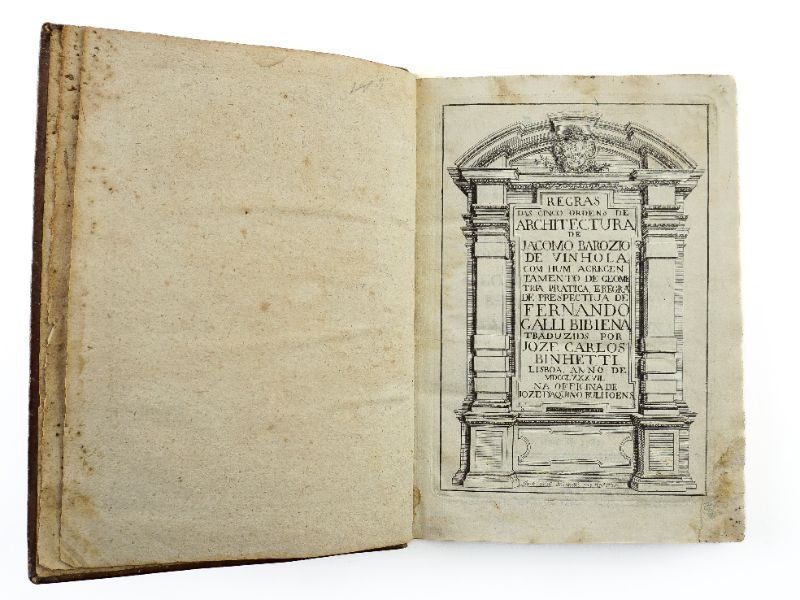 REGRAS
DAS CINCO ORDENS DE
ARCHITECTURA
DE
JACOMO BAROZIO
DE VINHOLA
COM HUM ACRECEN
TAMENTO DE GEOME
TRIA PRATICA, E REGRA
DE PRESPECTIJA DE
FERNANDO
GALLI BIBIENA
TRADUZIOS POR
JOZE CARLOS
BINHETTI
LISBOA ANNO DE
MDCCLXXXVII
NA OFFICINA DE
JOZE D'AQUINO BULHOENS